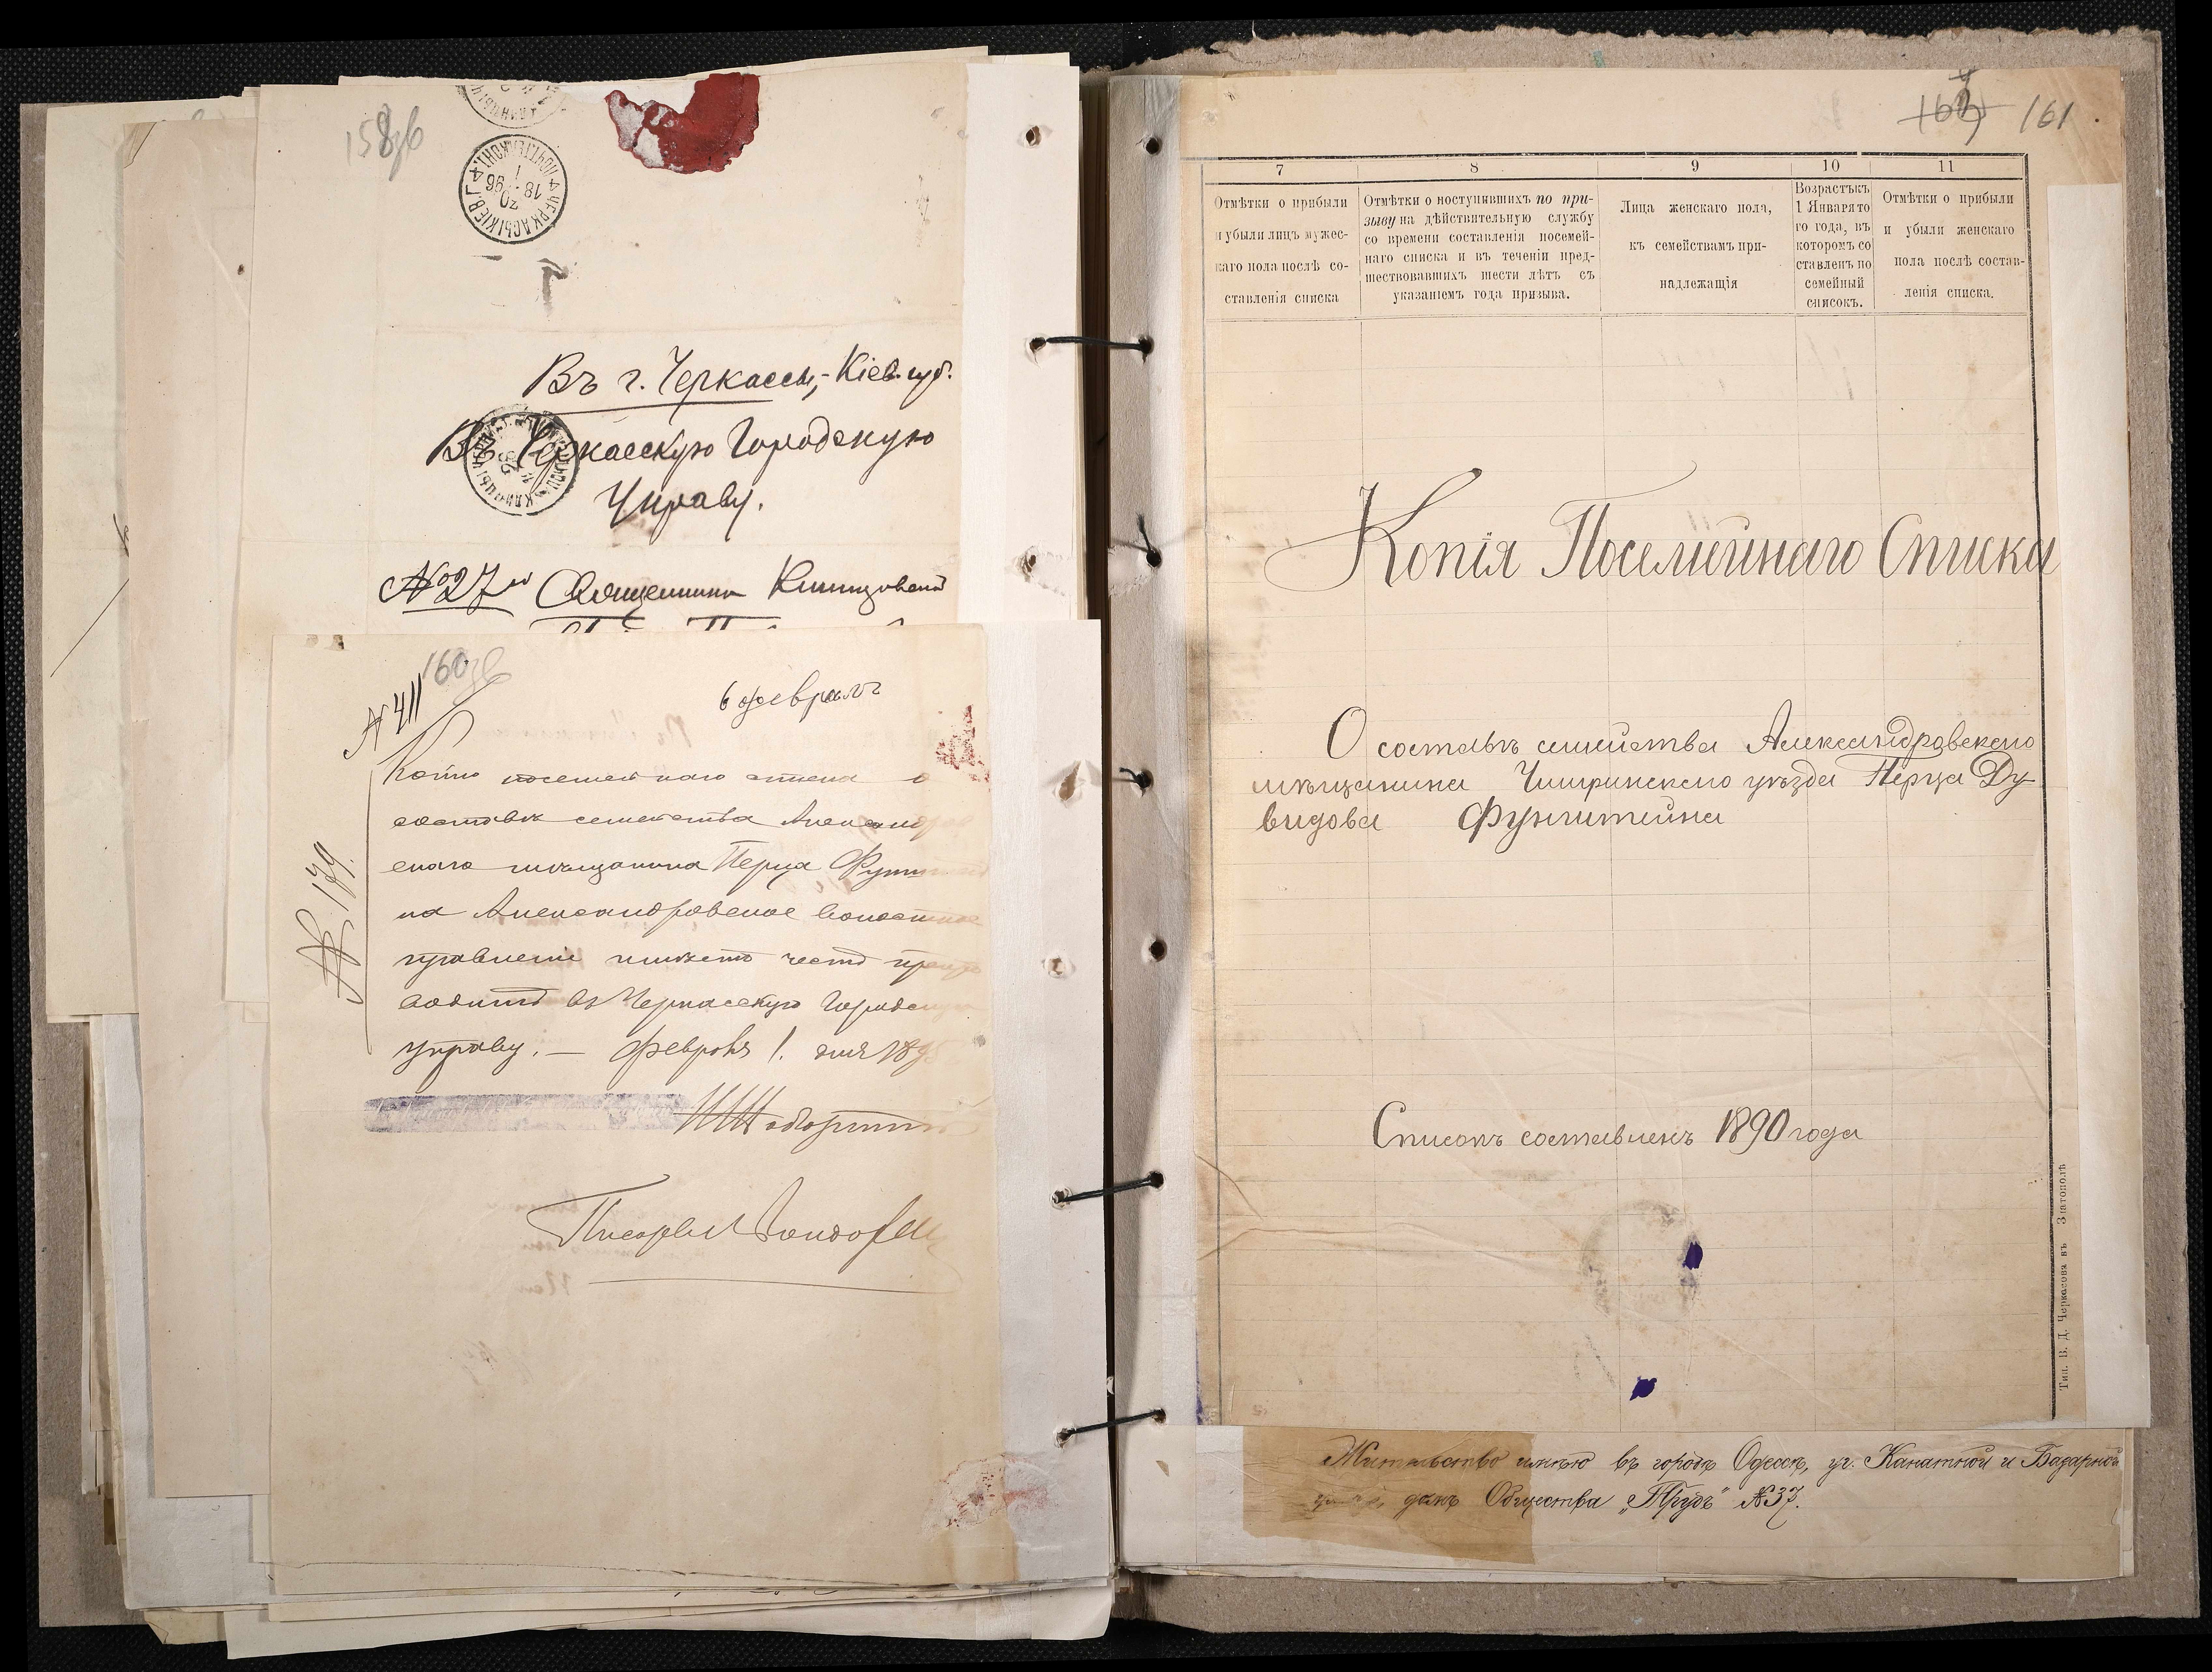 158об
ЧЕРКАСЫ КІЕВ. Г.
ПОЧТ. ТЕЛ. КОНТ.
20
18 96
1
Въ г. Черкассы, Кіев. губ.
Въ Черкасскую Городскую
Управу.
№ 27
160об
№ 411
6 февраля
№ 179.
Копію посемейнаго списка о
составѣ семейства Александров
скаго мѣщанина Перца Фунш
на Александровское волостное
правленіе имѣетъ честь препро
водить въ Черкасскую Городскую
управу. — Февраля 1. дня 189
Писарь
161
7 8 9 10 11
Отмѣтки о прибыли и убыли лицъ мужес-
каго пола послѣ со-
ставленія списка
Отмѣтки о поступившихъ по при-
зыву на дѣйствительную службу
со времени составленія посемей-
наго списка и въ теченіи пред-
шествовавшихъ шести лѣтъ съ
указаніемъ года призыва.
Лица женскаго пола,
къ семействамъ при-
надлежащія
Возрастъ къ
1 Января то
го года, въ
которомъ со
ставленъ по
семейный
списокъ.
Отмѣтки о прибыли
и убыли женскаго
пола послѣ состав-
ленія списка.
Копія Посемейнаго Списка
О составѣ семейства Александровскаго
мѣщанина Чигиринскаго уѣзда Перца Ду
видова Фунштейна
Списокъ составленъ 1890 года
Тип. В. Д. Черкасова въ Златополѣ
Жительство имѣю въ городѣ Одессѣ, уг. Канатной и Базарной
домъ Общества „Трудъ" № 37.